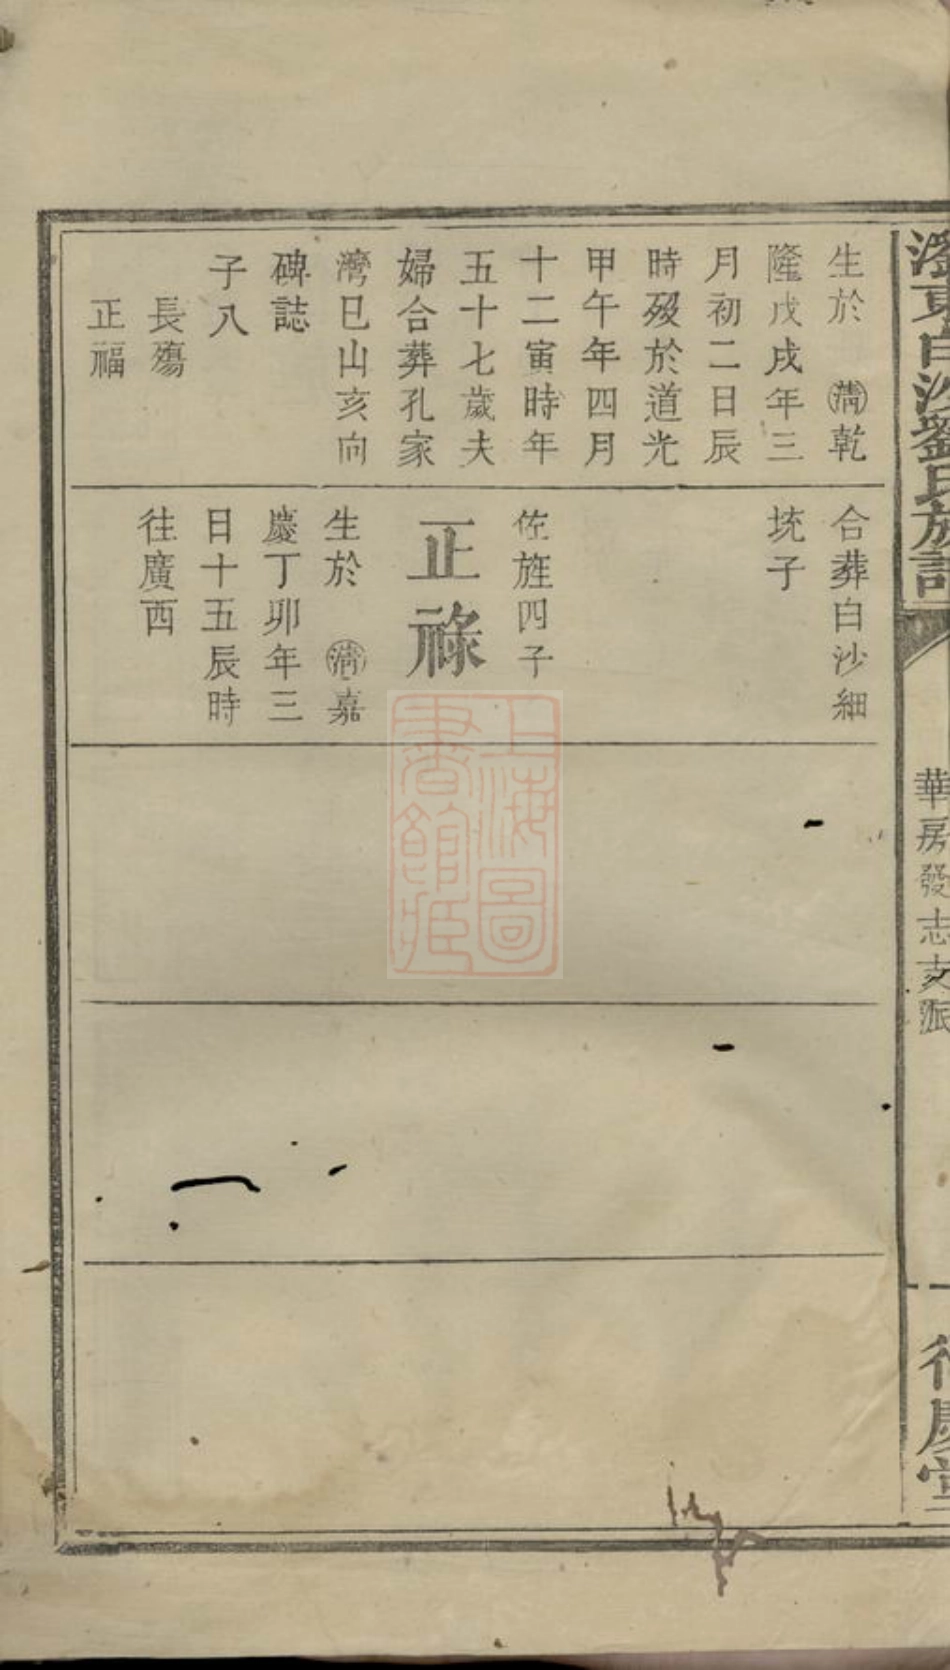 瀏東白沙劉氏族譜
華房發志支派
衍慶堂
生於　清乾
隆戊戌年三
月初二日辰
時歿於道光
甲午年四月
十二寅時年
五十七歲夫
婦合葬孔家
灣巳山亥向
碑誌
子八
長殤
正福
合葬白沙細
坑子
佐旌四子
正祿
生於　清嘉
慶丁卯年三
日十五辰時
往廣西
上海圖
書館藏